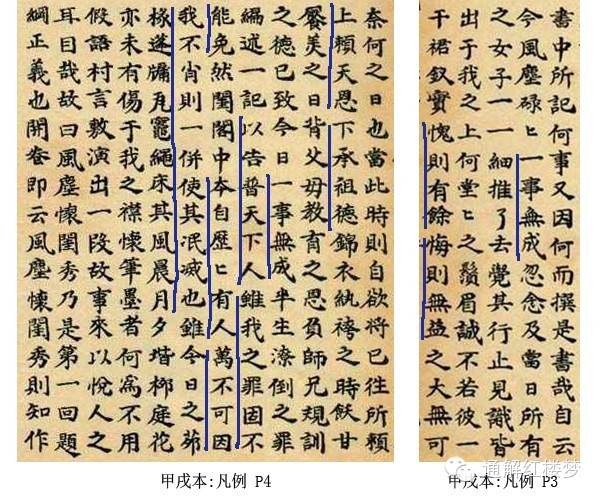 書中所記何事又因何而撰是書哉自云
今風塵碌匕一事無成忽念及當日所有
之女子一一細推了去覺其行止見識皆
出于我之上何堂匕之鬚眉誠不若彼一
干裙釵實愧則有餘悔則無益之大無可
甲戌本:凡例 P3
奈何之日也當此時則自欲將已往所賴
上賴天恩下承祖德錦衣紈袴之時飫甘
饜美之日背父母教育之恩負師兄規訓
之德已致今日一事無成半生潦倒之罪
編述一記以告普天下人雖我之罪固不
能免然閨閣中本自歷匕有人萬不可因
我不肖則一併使其泯滅也雖今日之茆
椽蓬牖瓦竈繩床其風晨月夕堦栁庭花
亦未有傷于我之襟懷筆墨者何為不用
假語村言敷演出一段故事來以悅人之
耳目哉故曰風塵懷閨秀乃是第一回題
綱正義也開卷即云風塵懷閨秀則知作
甲戌本:凡例 P4
通解红楼梦